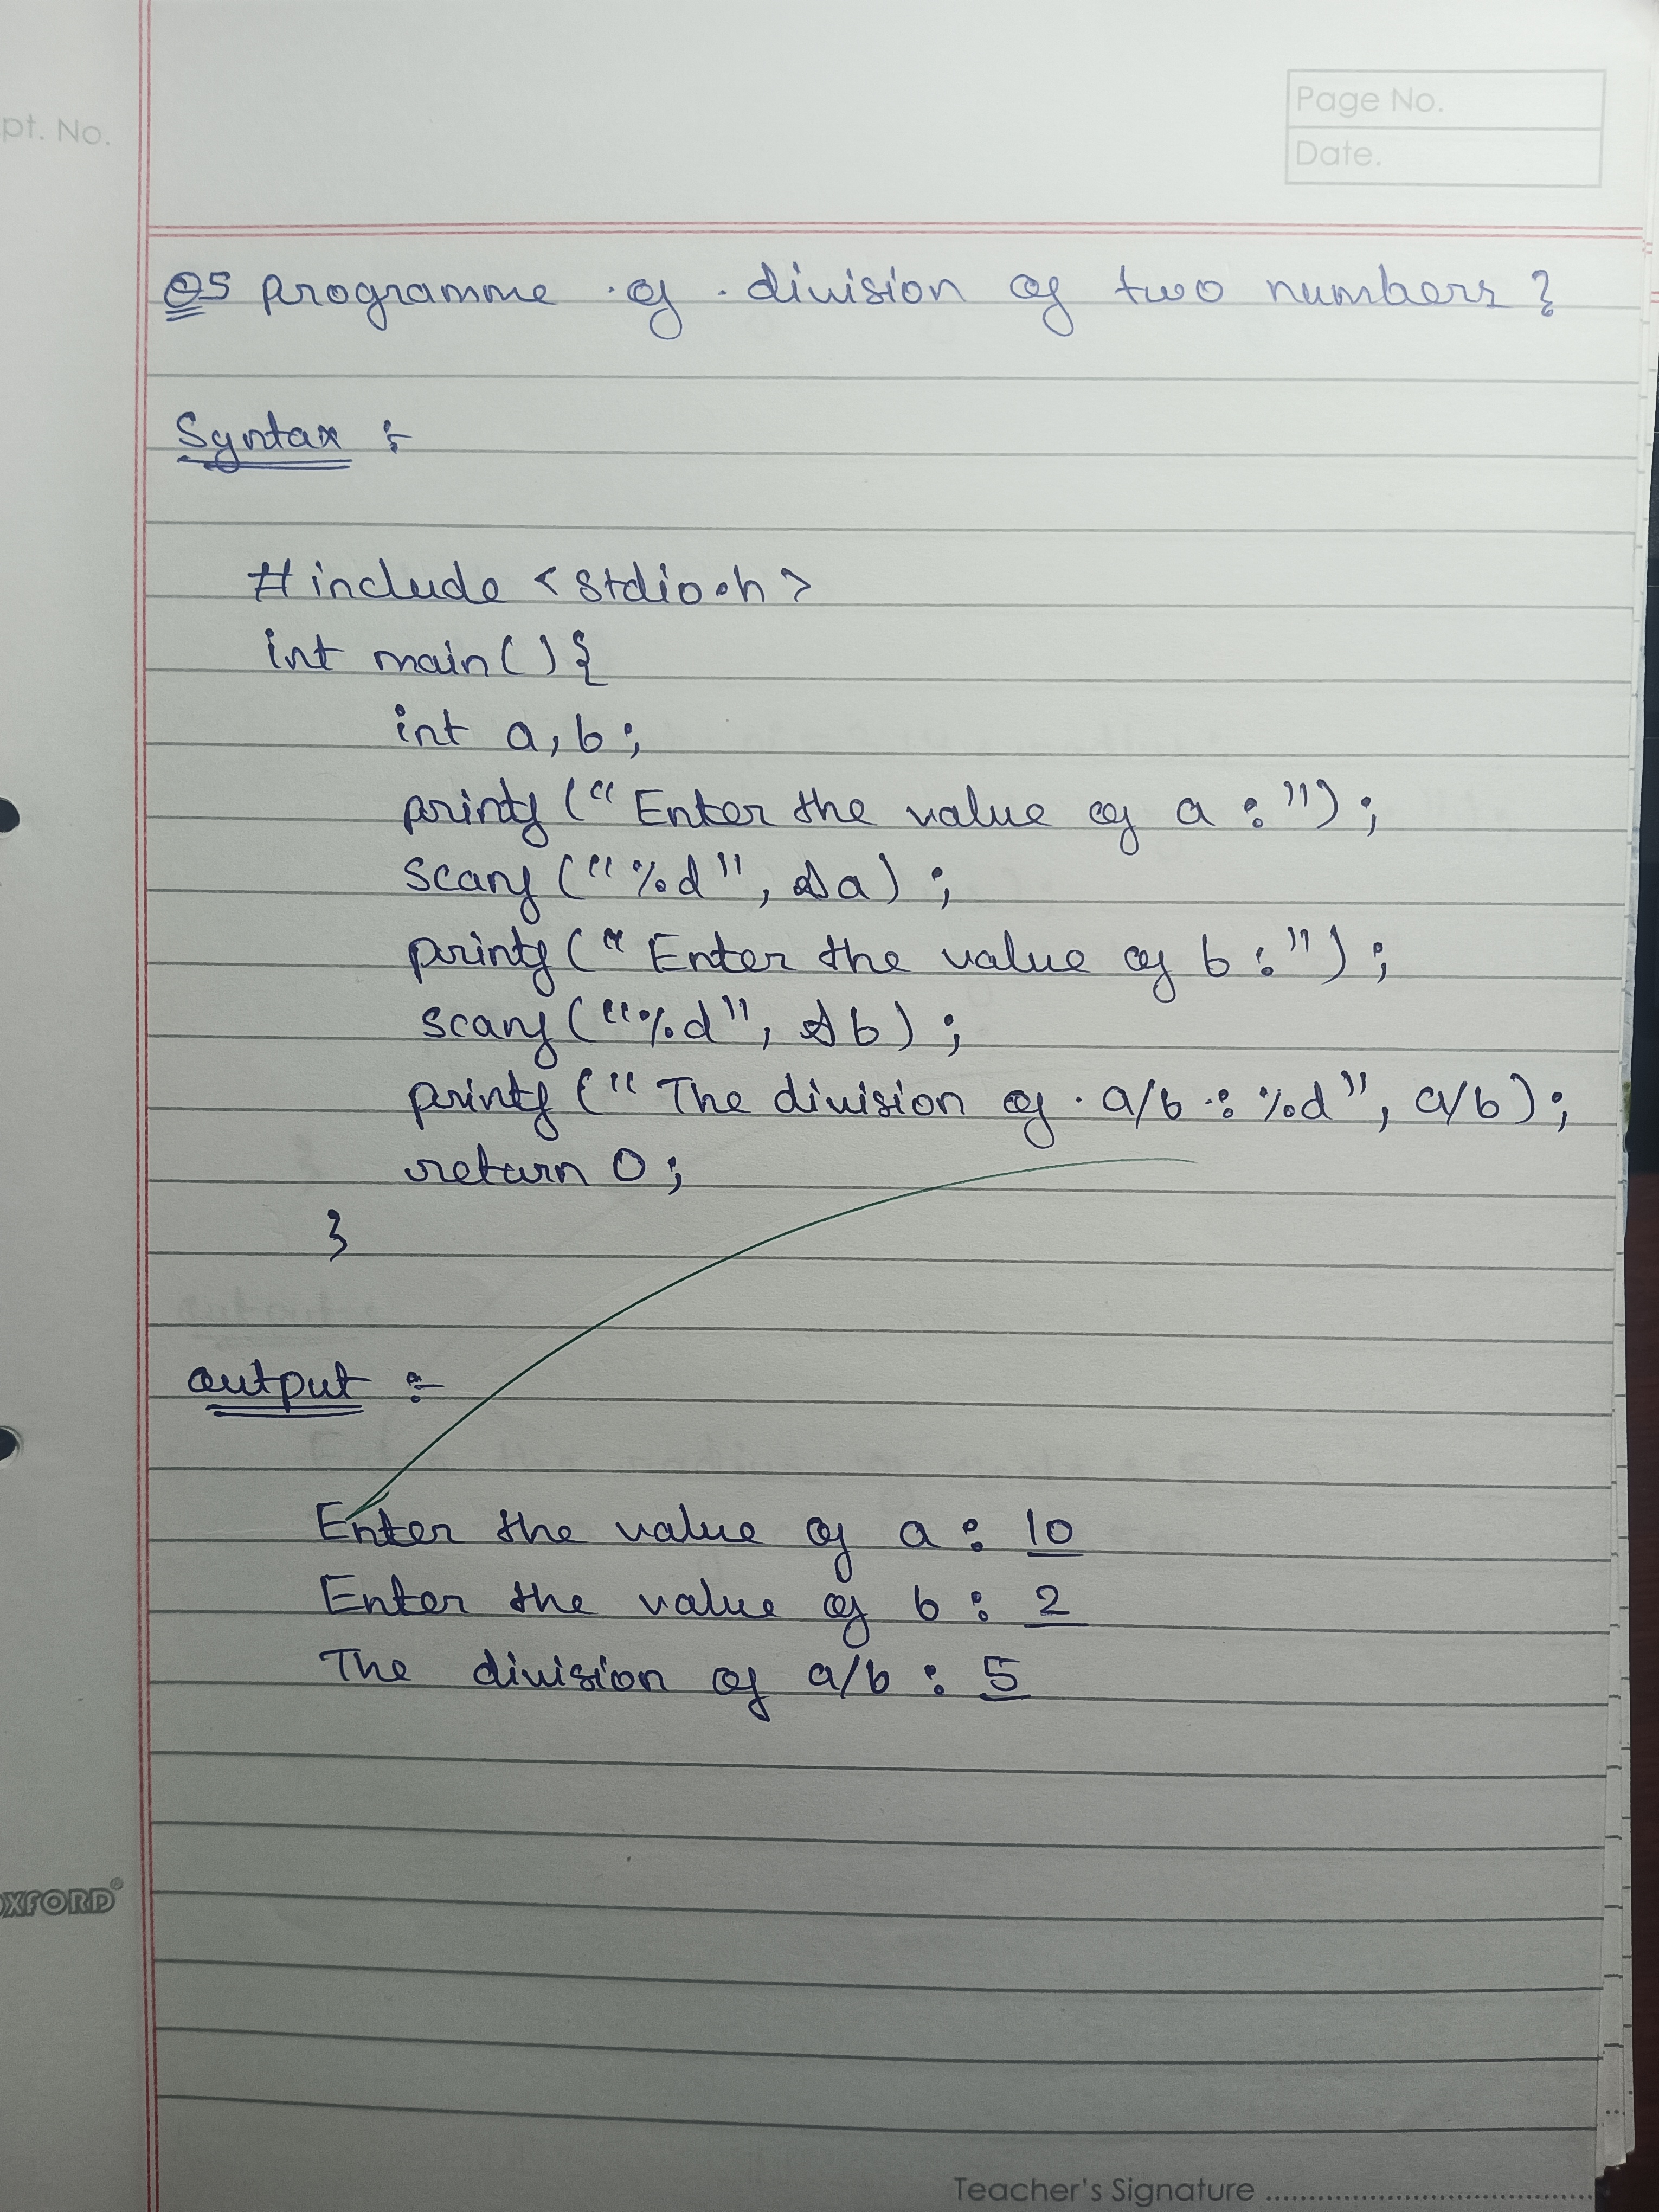 pt. No.
Page No.
Date.
Q5 Programme of division of two numbers?
Syntax :-
#include <stdio.h>
int main(){
int a, b;
printf("Enter the value of a :");
scanf("%d", &a);
printf("Enter the value of b :");
scanf("%d", &b);
printf("The division of a/b : %d", a/b);
return 0;
}
output :-
Enter the value of a : 10
Enter the value of b : 2
The division of a/b : 5
OXFORD®
Teacher's Signature